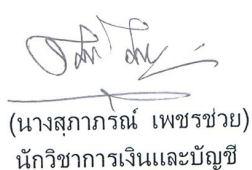 (นางสุภาภรณ์ เพชรช่วย)
นักวิชาการเงินและบัญชี